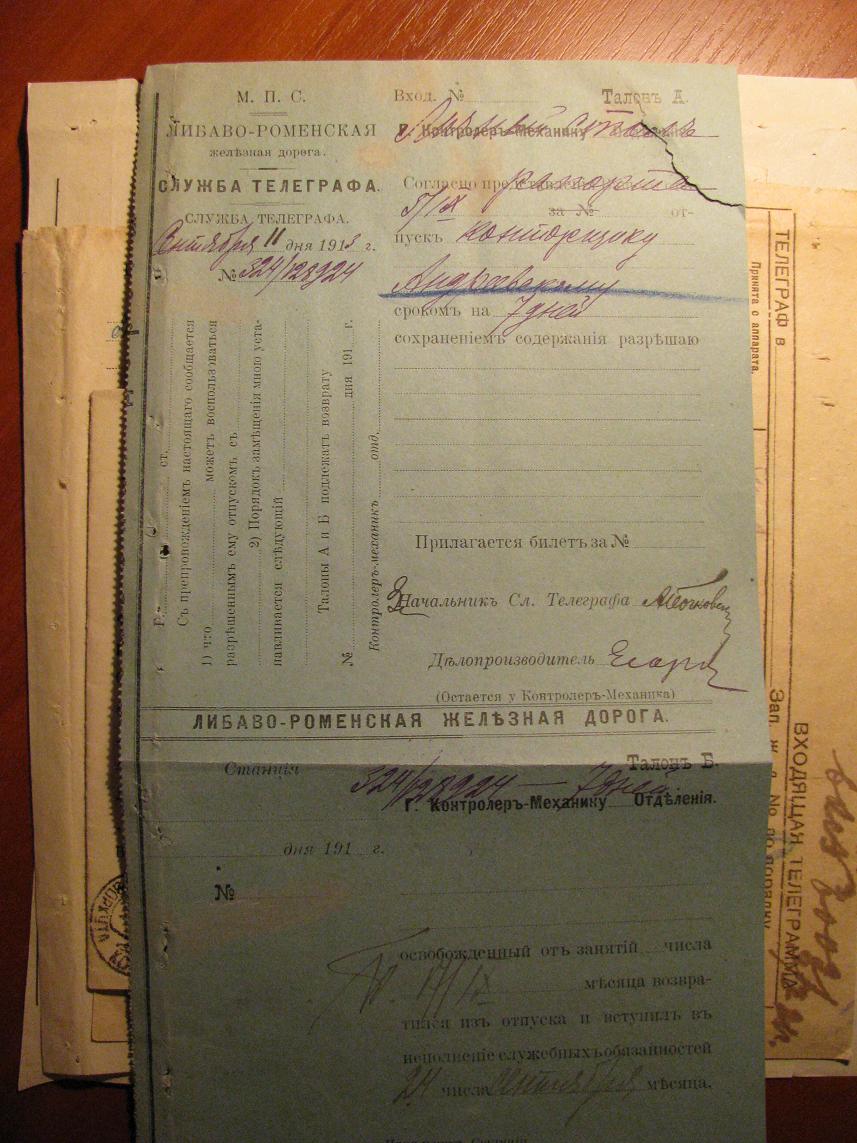 М. П. С.
ЛИБАВО-РОМЕНСКАЯ
желѣзная дорога.
СЛУЖБА ТЕЛЕГРАФА.
СЛУЖБА ТЕЛЕГРАФА.
Сентября 11 дня 1913 г.
№ 324/128924
Г. ст.
Съ препровожденіемъ настоящаго сообщается
1) что можетъ воспользоваться
разрѣшеннымъ ему отпускомъ съ
2) Порядокъ замѣщенія мною уста-
навливается слѣдующій
Талоны А и Б подлежатъ возврату
№ дня 191 г.
Контролеръ-механикъ отд.
Вход. № Талонъ А.
Г. Контролеръ-Механику
Согласно представленію рапорта
5/IX за № от-
пускъ конторщику
Андреевскому
срокомъ на 7 дней
сохраненіемъ содержанія разрѣшаю
Прилагается билетъ за №
Начальникъ Сл. Телеграфа
Дѣлопроизводитель
(Остается у Контролеръ-Механика)
ЛИБАВО-РОМЕНСКАЯ ЖЕЛѢЗНАЯ ДОРОГА.
Станція
Талонъ Б.
324/128924 — 7 дней
Г. Контролеръ-Механику Отдѣленія.
дня 191 г.
№
освобожденный отъ занятій числа
17/IX мѣсяца возвра-
тился изъ отпуска и вступилъ въ
исполненіе служебныхъ обязанностей
24 числа сентября мѣсяца.
ТЕЛЕГРАФ в
Принята с аппарата.
ВХОДЯЩАЯ ТЕЛЕГРАММА